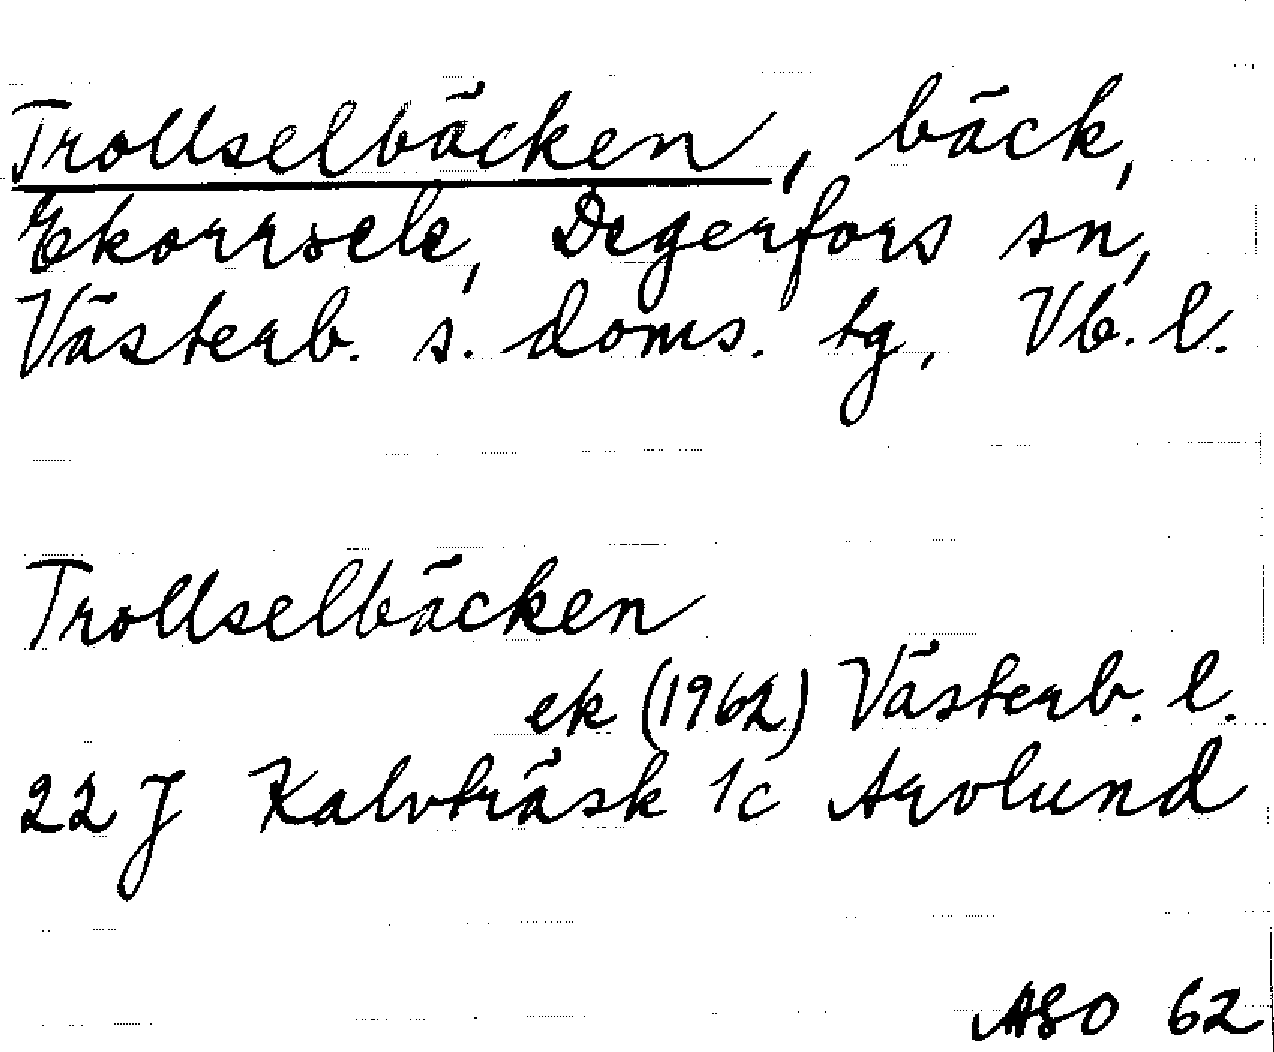 Trollselbäcken, bäck,
Ekorrsele, Degerfors sn,
Västerb. s. doms. tg, Vb. l.
Trollselbäcken
ek (1962) Västerb. l.
22 J Kalvträsk 1c Arvlund
ASO 62